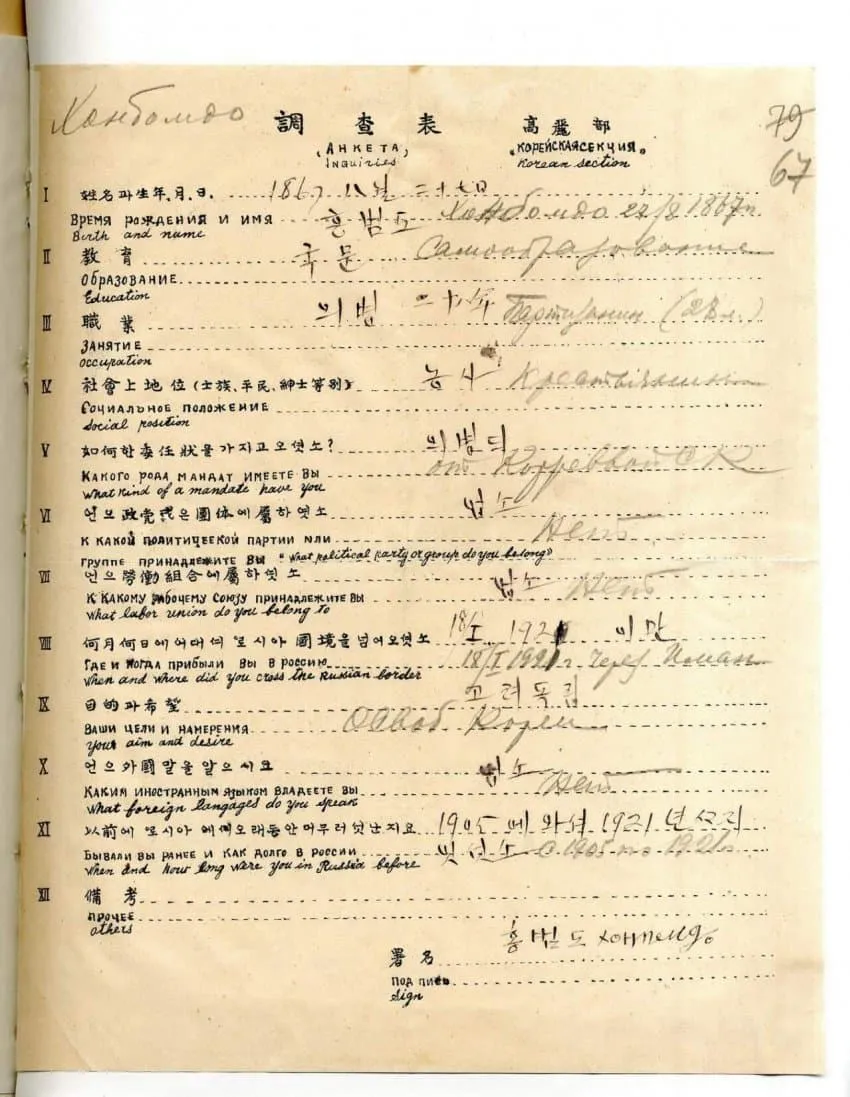 Ханбомдо
79
67
調查表
高麗部
(АНКЕТА)
"КОРЕЙСКАЯ СЕКЦИЯ"
Inquiries
Korean section
I 姓名과生年.月.日. 1867 八월 二十七日
ВРЕМЯ РОЖДЕНИЯ И ИМЯ 홍범도 Ханбомдо 27/8 1867г.
Birth and name
II 教育 국문 Самообразование
ОБРАЗОВАНИЕ
Education
III 職業 의병 二十年 Партизанин (28 л.)
ЗАНЯТИЕ
occupation
IV 社會上地位(士族.平民.紳士等別) 농사
СОЦИАЛЬНОЕ ПОЛОЖЕНИЕ
social position
V 如何한委任狀을가지고오엿소?
КАКОГО РОДА МАНДАТ ИМЕЕТЕ ВЫ от
what kind of a mandate have you
VI 언으政党或은團体에屬하엿소 업소
К КАКОЙ ПОЛИТИЦЕЕКОЙ ПАРТИИ ИЛИ Нет
ГРУППЕ ПРИНАДЛЕЖИТЕ ВЫ "what political party or group do you belong"
VII 언으勞働組合에屬하엿소 업소 Нет
К КАКОМУ РАБОЧЕМУ СОЮЗУ ПРИНАДЛЕЖИТЕ ВЫ
what labor union do you belong to
VIII 何月何日에어대여로시아國境을넘어오엿소 18/I 1921 이만
ГДЕ И КОГДА ПРИБЫЛИ ВЫ В РОССИЮ 18/I 1921 г. Через Иман
when and where did you cross the Russian border
IX 目的과希望 고려독립
ВАШИ ЦЕЛИ И НАМЕРЕНИЯ Освоб Кореи
your aim and desire
X 언으外國말을알으시요 업소
КАКИМ ИНОСТРАННЫМ ЯЗЫКОМ ВЛАДЕЕТЕ ВЫ Нет
what foreign langages do you speak
XI 以前에로시아에얘오래동안머무러섯난지요 1905에와서 1921년
БЫВАЛИ ВЫ РАНЕЕ И КАК ДОЛГО В РОССИИ с 1905 по 1921г.
when and how long were you in Russia before
XII 備考
ПРОЧЕЕ
others
홍범도
署名
ПОДПИСЬ
sign